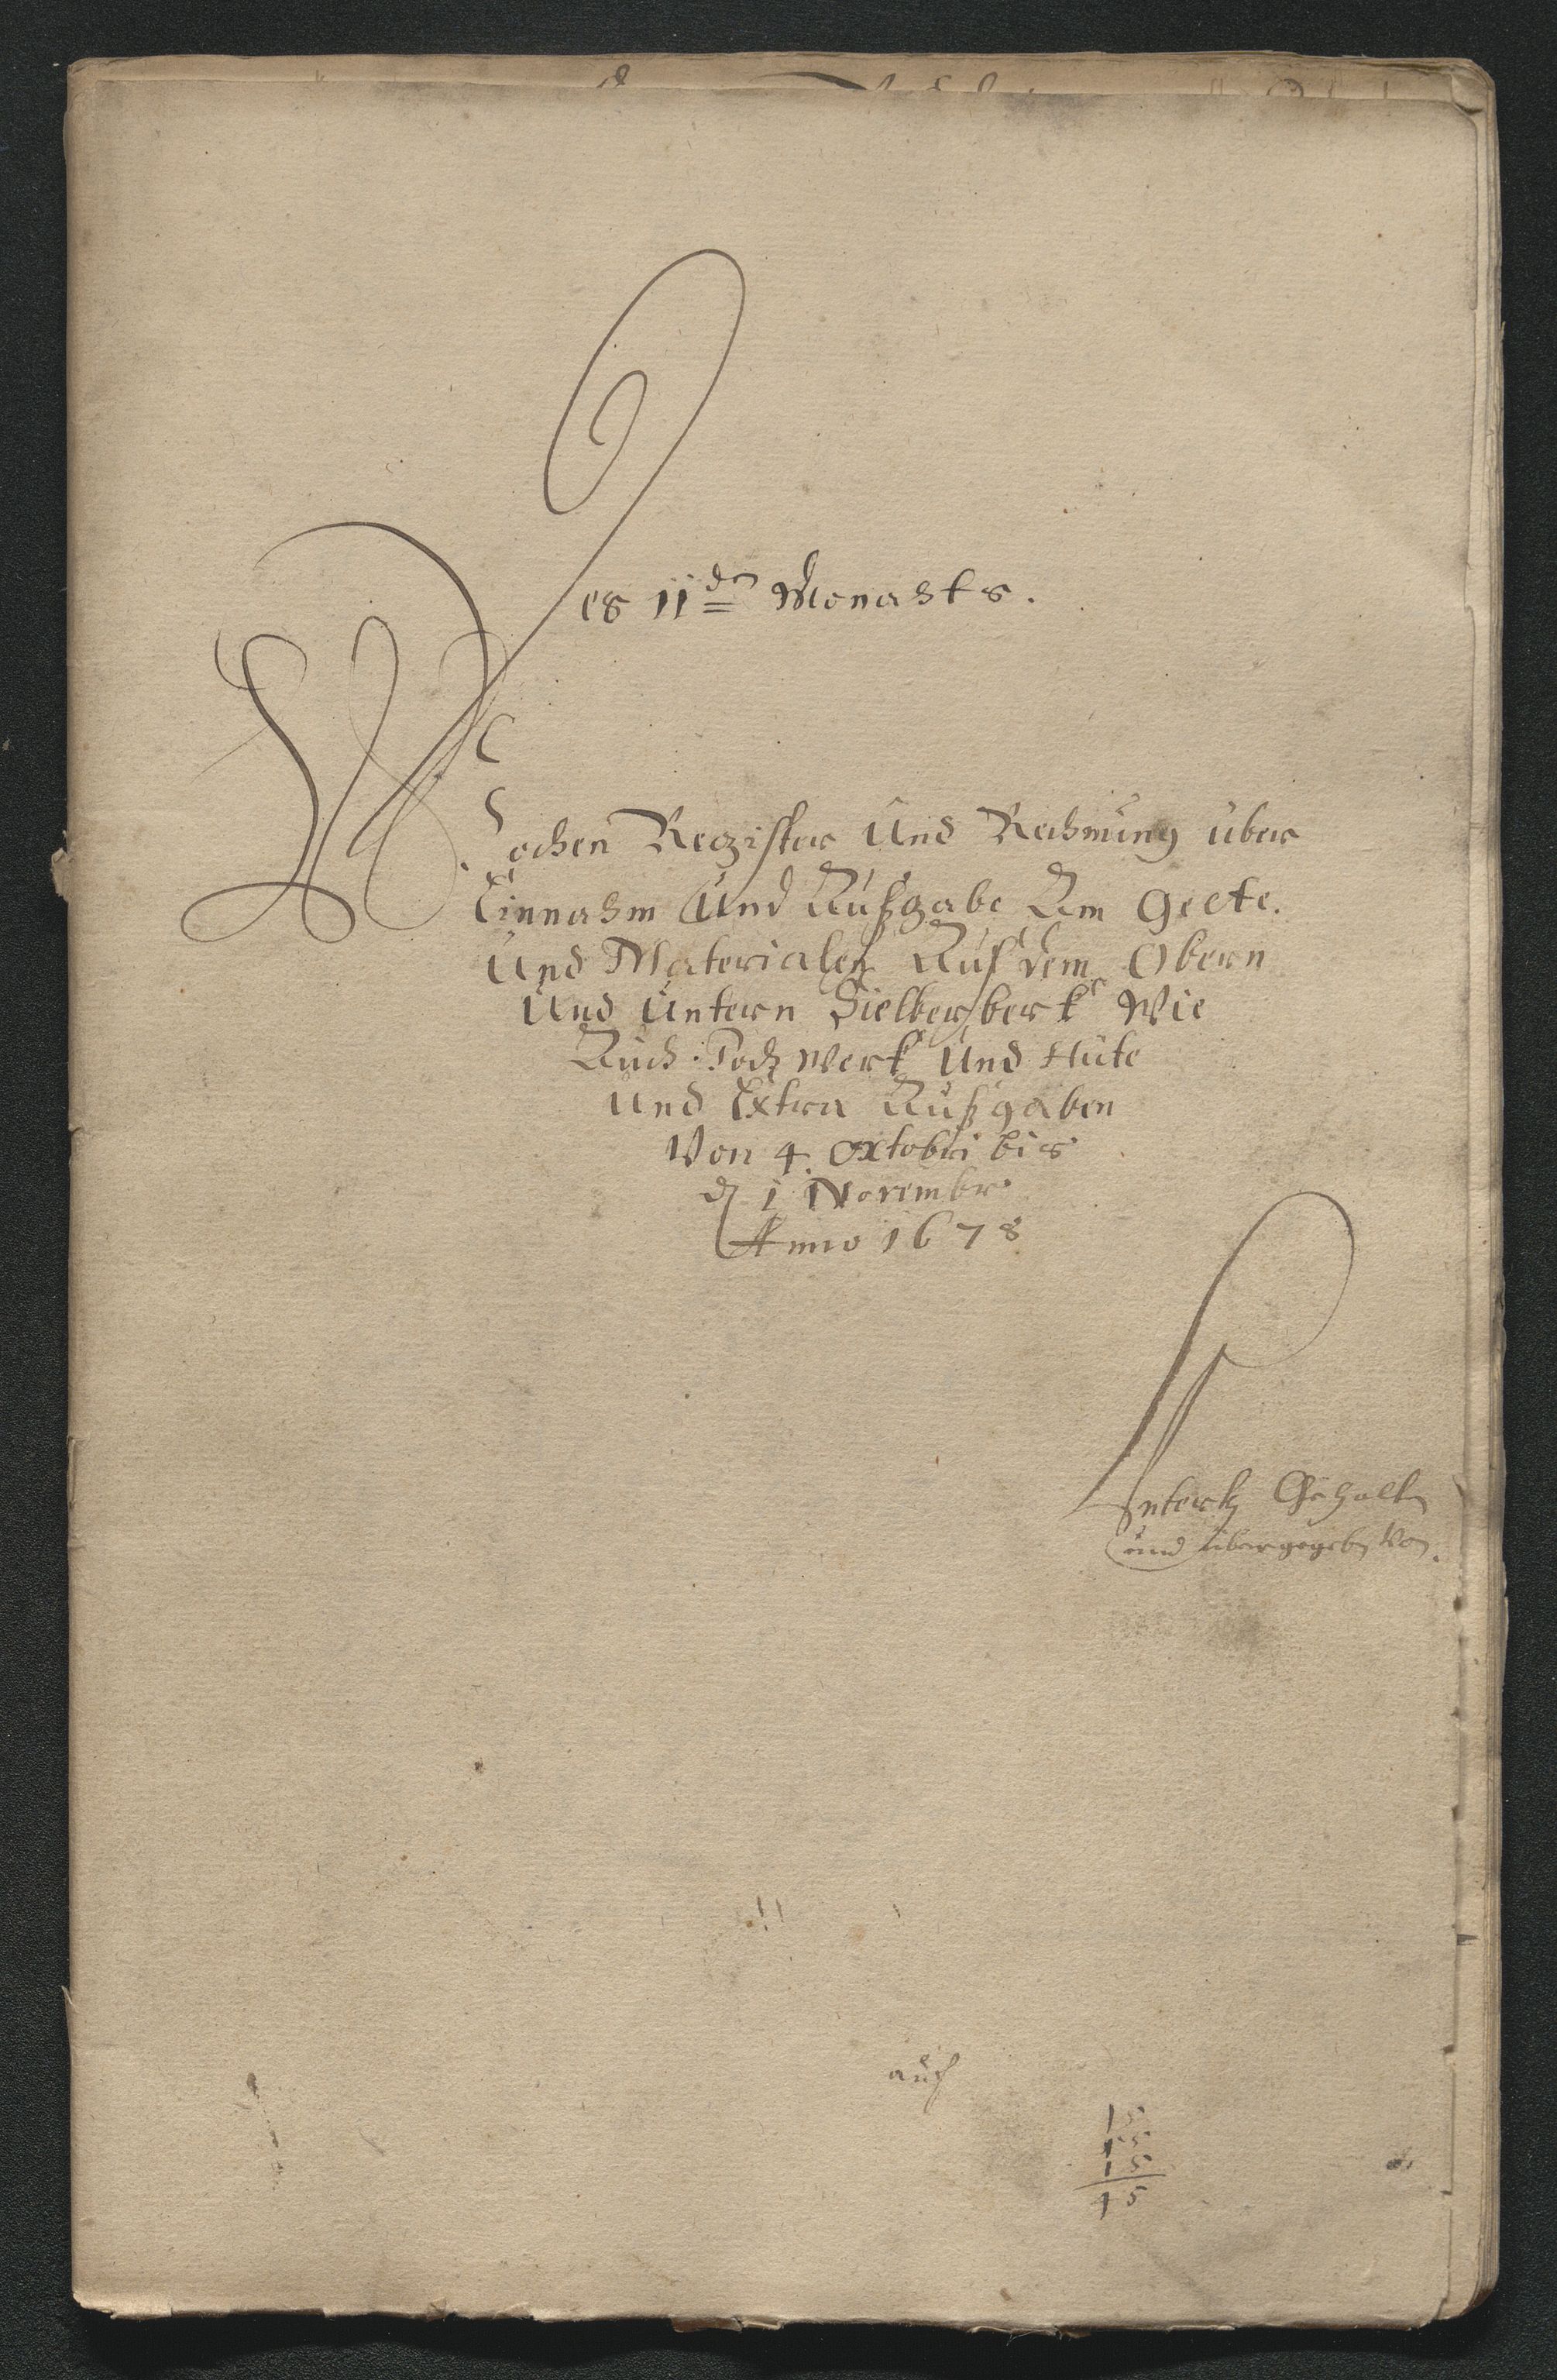 Des 11den Monahts.
Wochen Register Und Rechnung über
Einnahm Und Außgabe Am Geelte.
Und Materialen Auf dem Obern
Und Untern Sielberberk Wie
Auch Poch Werk Und Hüte
Und Extra Außgaben
Von 4. Oxtobri bis
d 1 Novembr
Anno 1678
Gehalten
und übergegeben Von
auch
15
15
15